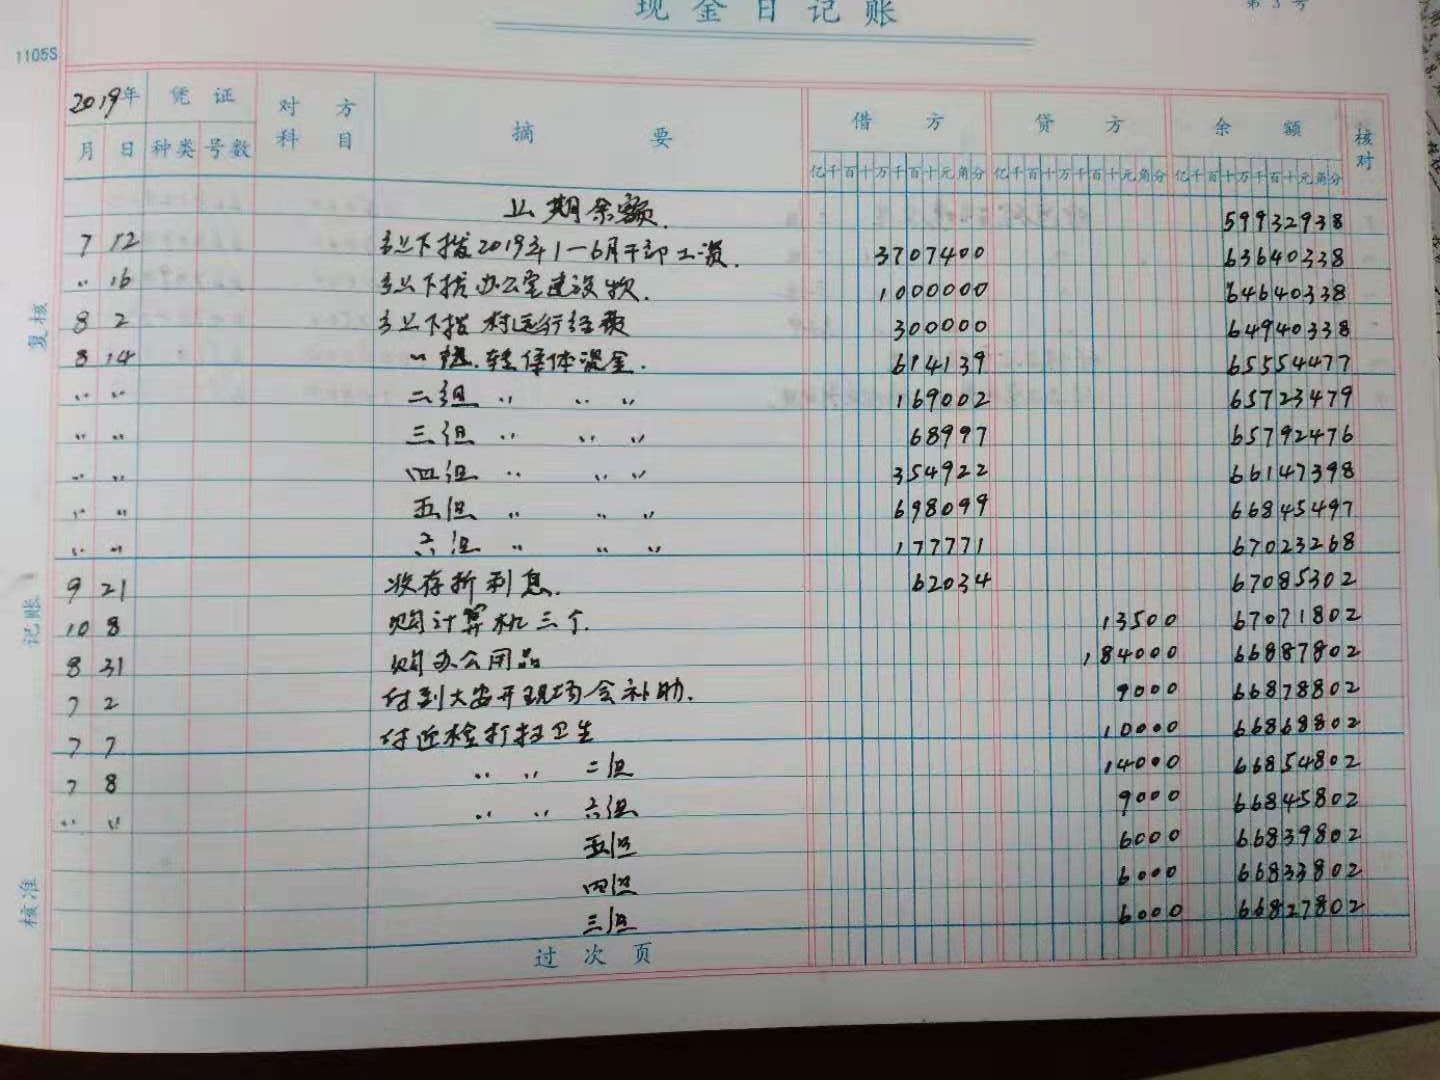 现金日记账
第 3 号
1105S
2019年 凭证 对方科目 摘要 借方 贷方 余额 核对
月 日 种类 号数 亿千百十万千百十元角分 亿千百十万千百十元角分 亿千百十万千百十元角分
上期余额. 59932938
7 12 乡上下拨2019年1—6月干部工资. 3707400 63640338
〃 16 乡上下拨办公室建设款. 1000000 64640338
8 2 乡上下拨村运行经费 300000 64940338
8 14 〃 转集体资金. 614139 65554477
〃 〃 二组 〃 〃 〃 169002 65723479
〃 〃 三组 〃 〃 〃 68997 65792476
〃 〃 四组 〃 〃 〃 354922 66147398
〃 〃 五组 〃 〃 〃 698099 66845497
〃 〃 六组 〃 〃 〃 177771 67023268
9 21 收存折利息. 62034 67085302
10 8 购计算机三个. 13500 67071802
8 31 购办公用品 184000 66887802
7 2 付到大安开现场会补助. 9000 66878802
7 7 付迎检打扫卫生 10000 66868802
7 8 〃 〃 二组 14000 66854802
〃 〃 〃 〃 六组 9000 66845802
五组 6000 66839802
四组 6000 66833802
三组 6000 66827802
过次页
复核
记账
核准